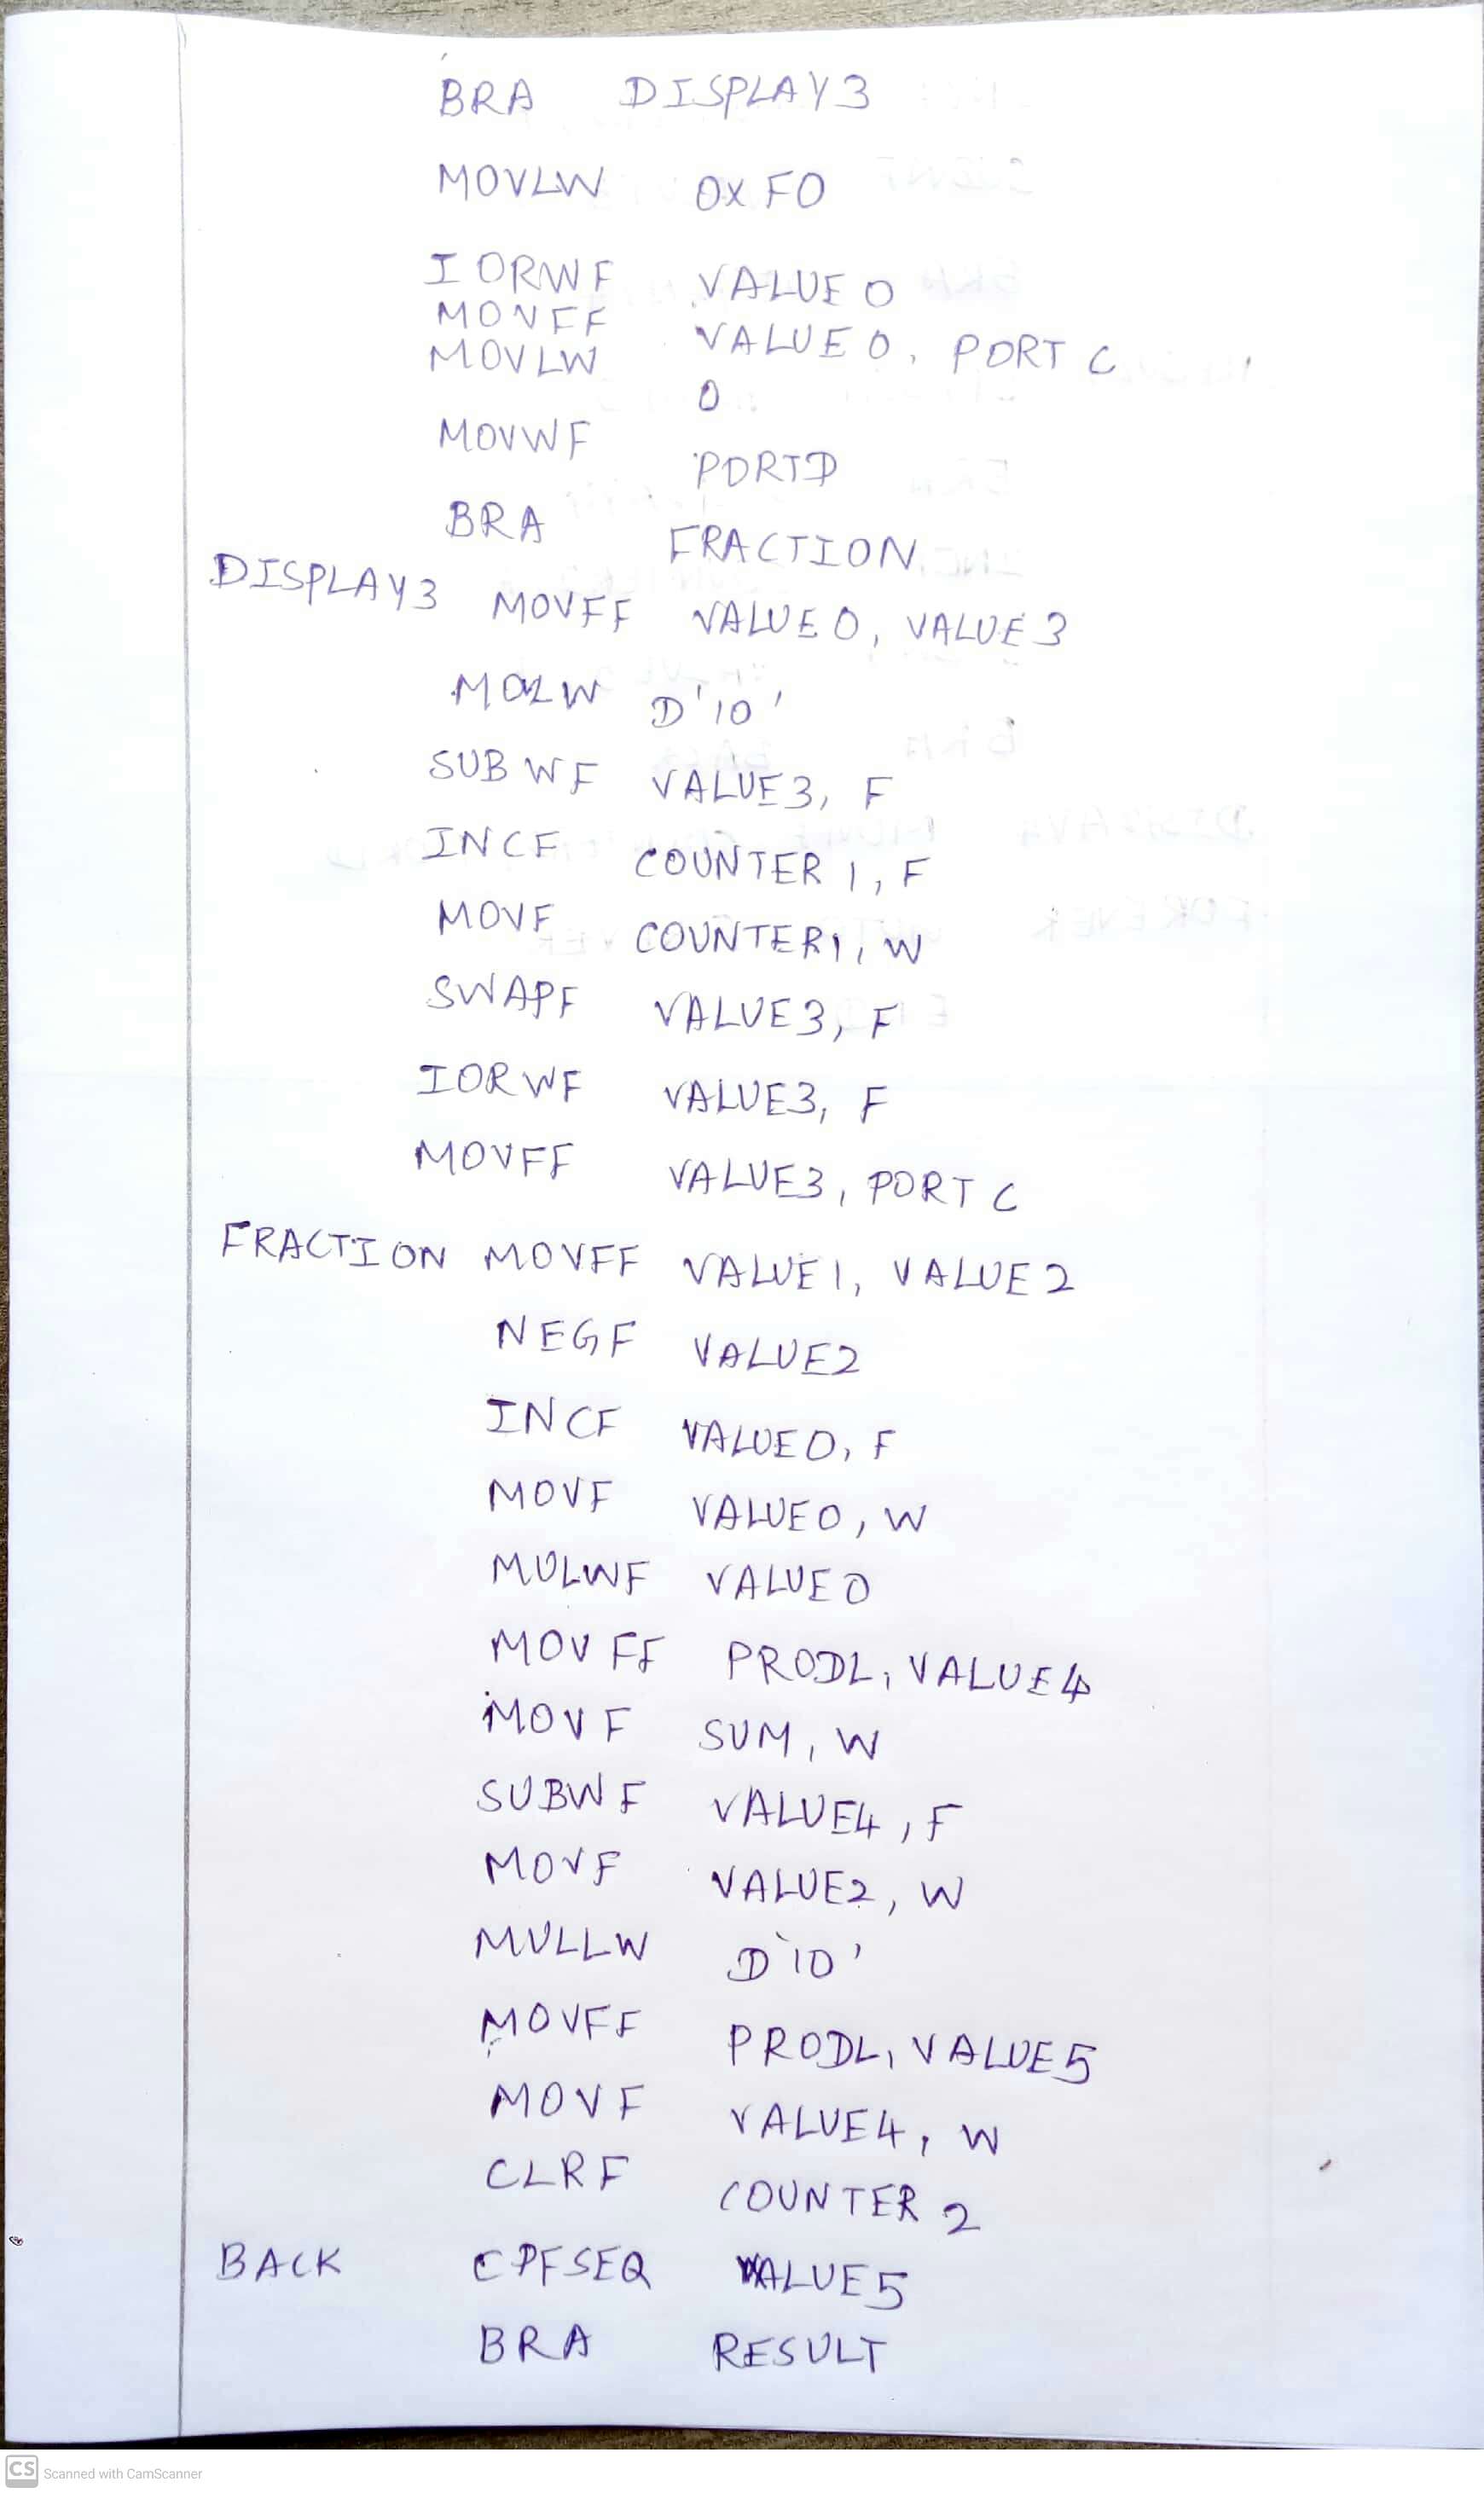 BRA DISPLAY3
MOVLW 0XF0
IORWF VALUE0
MOVFF VALUE0, PORTC
MOVLW 0
MOVWF PORTD
BRA FRACTION
DISPLAY3 MOVFF VALUE0, VALUE3
MOLW D'10'
SUBWF VALUE3, F
INCF COUNTER1, F
MOVF COUNTER1, W
SWAPF VALUE3, F
IORWF VALUE3, F
MOVFF VALUE3, PORTC
FRACTION MOVFF VALUE1, VALUE2
NEGF VALUE2
INCF VALUE0, F
MOVF VALUE0, W
MULWF VALUE0
MOVFF PRODL, VALUE4
MOVF SUM, W
SUBWF VALUE4, F
MOVF VALUE2, W
MULLW D'10'
MOVFF PRODL, VALUE5
MOVF VALUE4, W
CLRF COUNTER2
BACK CPFSEQ VALUE5
BRA RESULT
CS Scanned with CamScanner